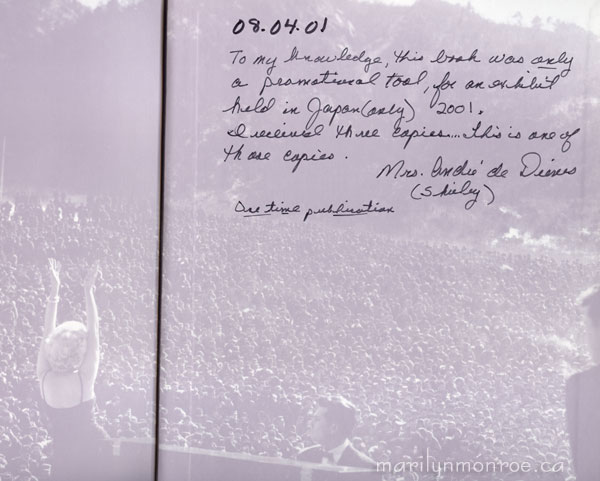 08.04.01
To my knowledge, this book was only
a promotional tool, for an exhibit
held in Japan (only) 2001.
I received three copies... This is one of
those copies.
Mrs. André de Dienes
(Shirley)
One time publication
marilynmonroe.ca